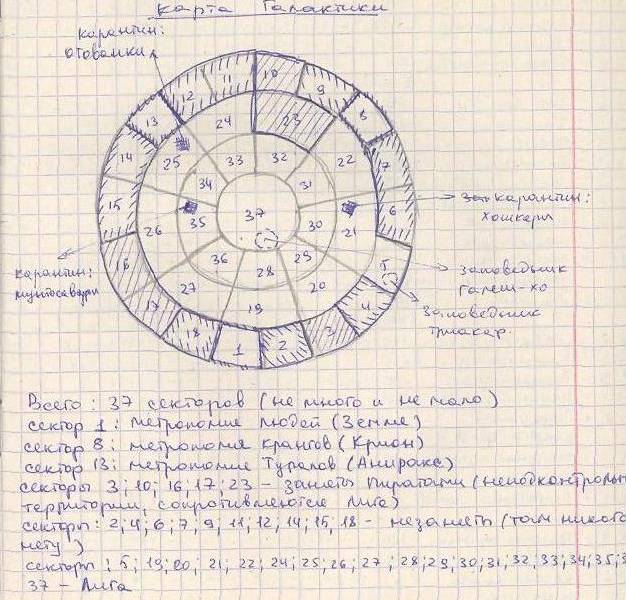 Карта Галактики
карантин:
отовалки
11
10
12
9
24
23
8
13
14
25
33
32
22
7
34
31
15
35
37
30
21
6
карантин:
хошкеры
26
36
28
29
5
16
27
19
20
4
17
18
1
2
3
карантин:
заповедник
галеш-хо
заповедник
триакер.
Всего: 37 секторов (не много и не мало)
сектор 1: метрополие людей (Земле)
сектор 8: метрополия крангов (Крион)
сектор 13: метрополие Туралов (Анираке)
секторы 3; 10; 16; 17; 23 - заняты пиратами (неподконтрольн
территории, сопротивляются Лига)
секторы: 2; 4; 6; 7; 9; 11; 12; 14; 15; 18 - незаняты (там никого
нету)
секторы: 5; 19; 20; 21; 22; 24; 25; 26; 27; 28; 29; 30; 31; 32; 33; 34; 35; 3
37 - Лига